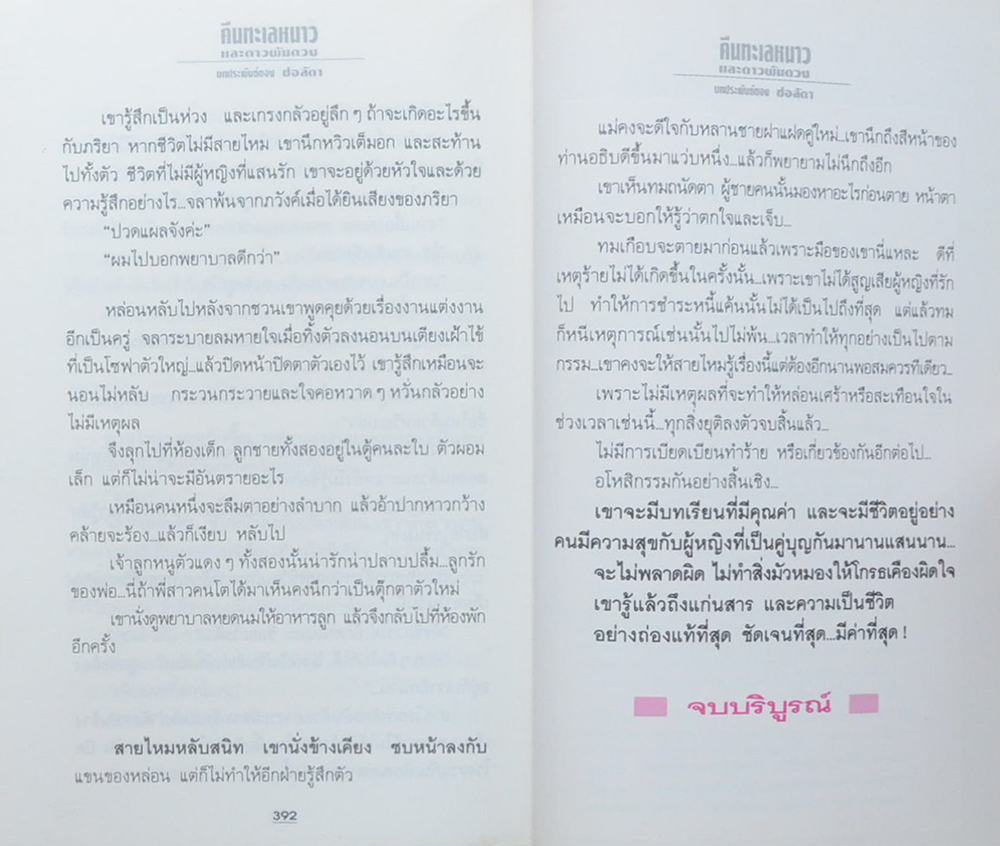 คืนทะเลหนาว
และดาวพันดวง
บทประพันธ์ของ ช่อลัดา
เขารู้สึกเป็นห่วง และเกรงกลัวอยู่ลึก ๆ ถ้าจะเกิดอะไรขึ้น
กับภริยา หากชีวิตไม่มีสายไหม เขานึกหวิวเต็มอก และสะท้าน
ไปทั้งตัว ชีวิตที่ไม่มีผู้หญิงที่แสนรัก เขาจะอยู่ด้วยหัวใจและด้วย
ความรู้สึกอย่างไร...จลาพ้นจากภวังค์เมื่อได้ยินเสียงของภริยา
“ปวดแผลจังค่ะ”
“ผมไปบอกพยาบาลดีกว่า”
หล่อนหลับไปหลังจากชวนเขาพูดคุยด้วยเรื่องงานแต่งงาน
อีกเป็นครู่ จลาระบายลมหายใจเมื่อทิ้งตัวลงนอนบนเตียงเฝ้าไข้
ที่เป็นโซฟาตัวใหญ่...แล้วปิดหน้าปิดตาตัวเองไว้ เขารู้สึกเหมือนจะ
นอนไม่หลับ กระวนกระวายและใจคอหวาด ๆ หวั่นกลัวอย่าง
ไม่มีเหตุผล
จึงลุกไปที่ห้องเด็ก ลูกชายทั้งสองอยู่ในตู้คนละใบ ตัวผอม
เล็ก แต่ก็ไม่น่าจะมีอันตรายอะไร
เหมือนคนหนึ่งจะลืมตาอย่างลำบาก แล้วอ้าปากหาวกว้าง
คล้ายจะร้อง...แล้วก็เงียบ หลับไป
เจ้าลูกหนูตัวแดง ๆ ทั้งสองนั้นน่ารักน่าปลาบปลื้ม...ลูกรัก
ของพ่อ...นี่ถ้าพี่สาวคนโตได้มาเห็นคงนึกว่าเป็นตุ๊กตาตัวใหม่
เขานั่งดูพยาบาลหยดนมให้อาหารลูก แล้วจึงกลับไปที่ห้องพัก
อีกครั้ง
สายไหมหลับสนิท เขานั่งข้างเคียง ซบหน้าลงกับ
แขนของหล่อน แต่ก็ไม่ทำให้อีกฝ่ายรู้สึกตัว
392
คืนทะเลหนาว
และดาวพันดวง
บทประพันธ์ของ ช่อลัดา
แม่คงจะดีใจกับหลานชายฝาแฝดคู่ใหม่...เขานึกถึงสีหน้าของ
ท่านอธิบดีขึ้นมาแว่บหนึ่ง...แล้วก็พยายามไม่นึกถึงอีก
เขาเห็นทมถนัดตา ผู้ชายคนนั้นมองหาอะไรก่อนตาย หน้าตา
เหมือนจะบอกให้รู้ว่าตกใจและเจ็บ...
ทมเกือบจะตายมาก่อนแล้วเพราะมือของเขานี่แหละ ดีที่
เหตุร้ายไม่ได้เกิดขึ้นในครั้งนั้น...เพราะเขาไม่ได้สูญเสียผู้หญิงที่รัก
ไป ทำให้การชำระหนี้แค้นนั้นไม่ได้เป็นไปถึงที่สุด แต่แล้วทม
ก็หนีเหตุการณ์เช่นนั้นไปไม่พ้น...เวลาทำให้ทุกอย่างเป็นไปตาม
กรรม...เขาคงจะให้สายไหมรู้เรื่องนี้แต่ต้องอีกนานพอสมควรทีเดียว...
เพราะไม่มีเหตุผลที่จะทำให้หล่อนเศร้าหรือสะเทือนใจใน
ช่วงเวลาเช่นนี้...ทุกสิ่งยุติลงตัวจบสิ้นแล้ว...
ไม่มีการเบียดเบียนทำร้าย หรือเกี่ยวข้องกันอีกต่อไป...
อโหสิกรรมกันอย่างสิ้นเชิง...
เขาจะมีบทเรียนที่มีคุณค่า และจะมีชีวิตอยู่อย่าง
คนมีความสุขกับผู้หญิงที่เป็นคู่บุญกันมานานแสนนาน...
จะไม่พลาดผิด ไม่ทำสิ่งมัวหมองให้โกรธเคืองผิดใจ
เขารู้แล้วถึงแก่นสาร และความเป็นชีวิต
อย่างถ่องแท้ที่สุด ชัดเจนที่สุด...มีค่าที่สุด !
จบบริบูรณ์